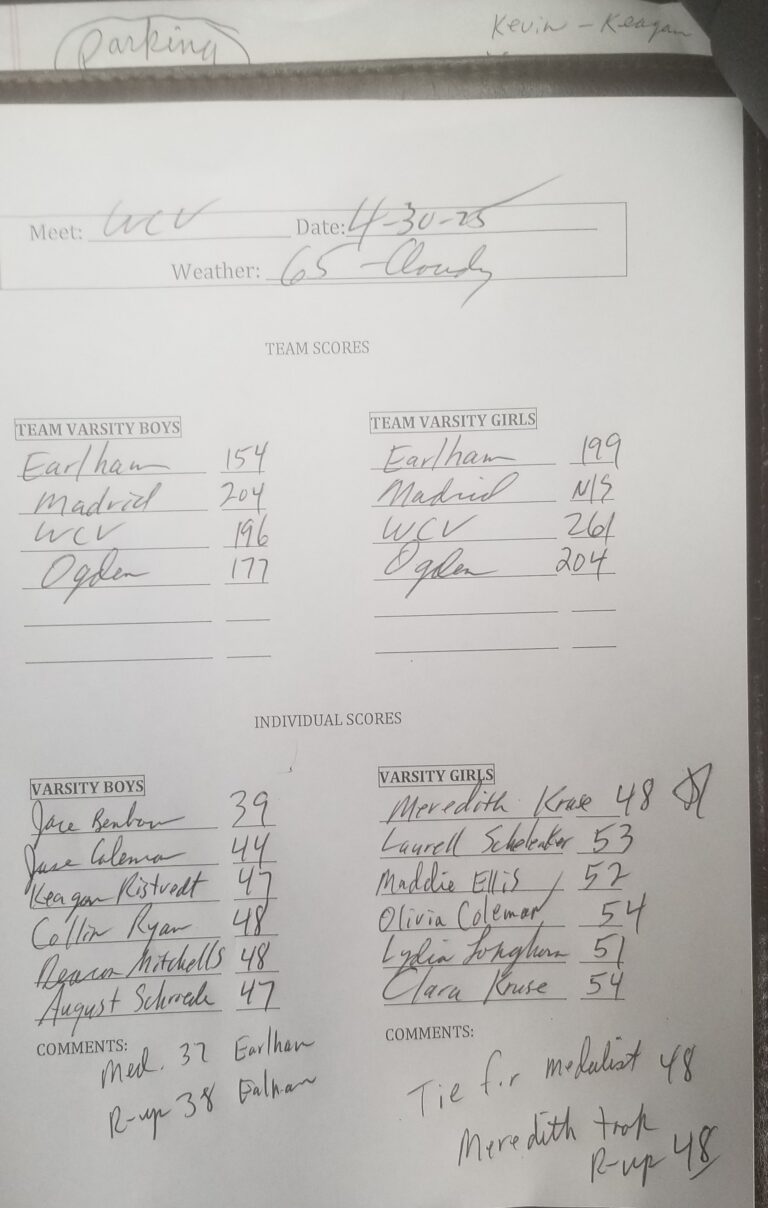 parking
Kevin - Keagan
Meet: WCV Date: 4-30-25
Weather: 65 - Cloudy
TEAM SCORES
TEAM VARSITY BOYS
Earlham 154
Madrid 204
WCV 196
Ogden 177
TEAM VARSITY GIRLS
Earlham 199
Madrid N/S
WCV 261
Ogden 204
INDIVIDUAL SCORES
VARSITY BOYS
Jace Benbow 39
Coleman 44
Keagan Ristvedt 47
Collin Ryan 48
Deacon Mitchells 48
August 47
COMMENTS:
Med. 37 Earlham
R-up 38
VARSITY GIRLS
Meredith Kruse 48
Laurell 53
Maddie Ellis 52
Olivia Coleman 54
Lydia 51
Clara Kruse 54
COMMENTS:
Tie for medalist 48
Meredith took
R-up 48